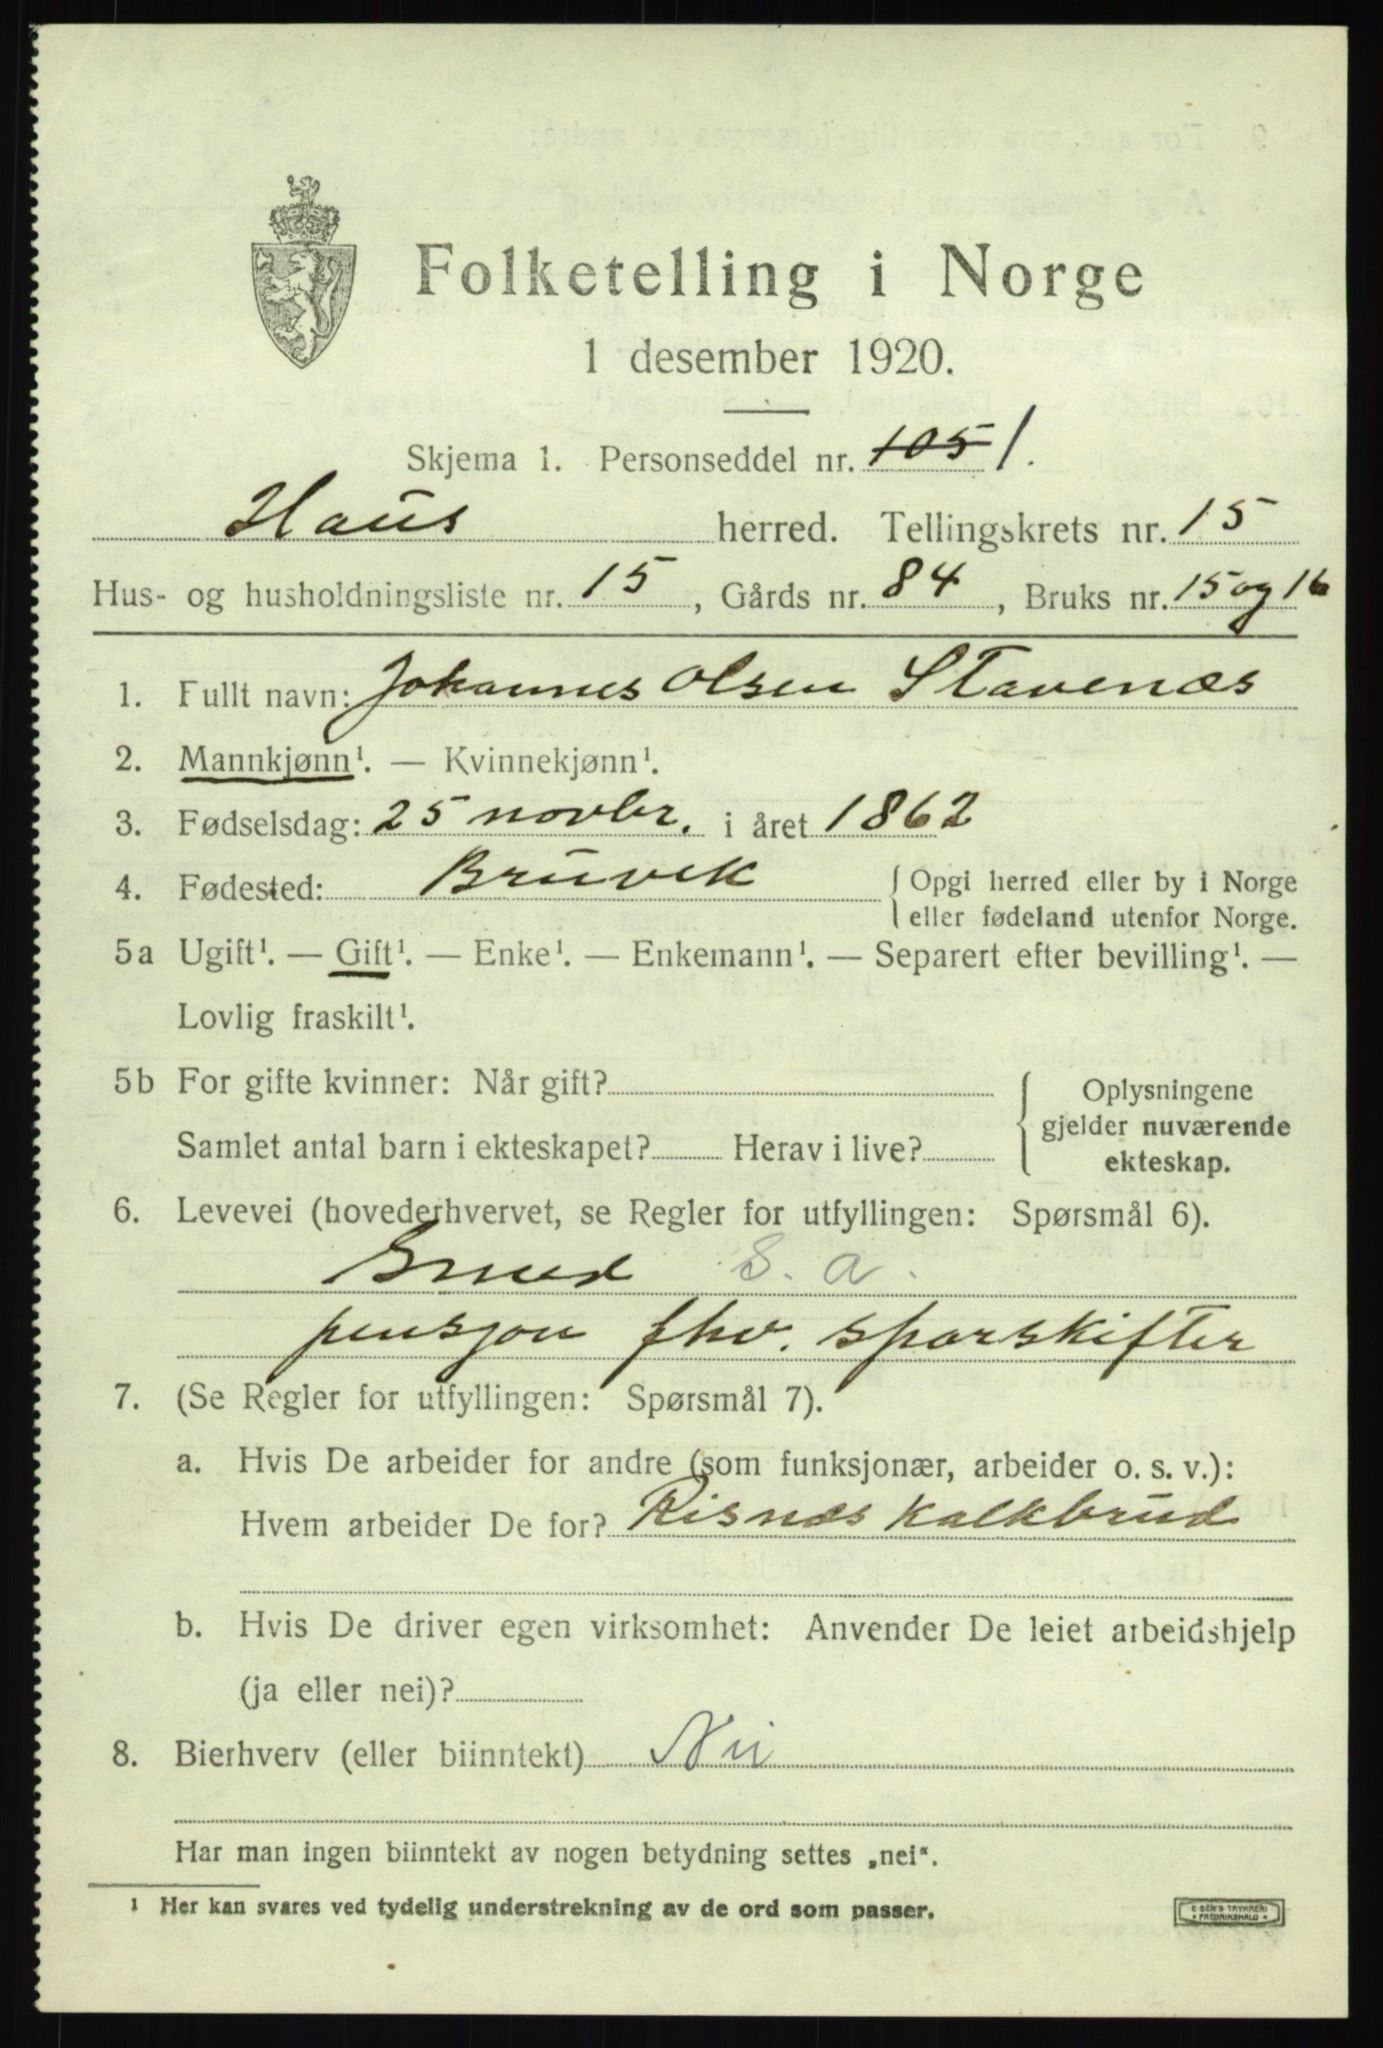 Folketelling i Norge
1 desember 1920.
Skjema 1. Personseddel nr. 105 1.
Haus herred. Tellingskrets nr. 15
Hus- og husholdningsliste nr. 15, Gårds nr. 84, Bruks nr. 15 og 16
1. Fullt navn: Johannes Olsen Stavenæs
2. Mannkjønn¹. — Kvinnekjønn¹.
3. Fødselsdag: 25 novbr. i året 1862
4. Fødested: Bruvik { Opgi herred eller by i Norge
eller fødeland utenfor Norge.
5a Ugift¹. — Gift¹. — Enke¹. — Enkemann¹. — Separert efter bevilling¹. —
Lovlig fraskilt¹.
5b For gifte kvinner: Når gift? { Oplysningene
gjelder nuværende
Samlet antal barn i ekteskapet? Herav i live?
ekteskap.
6. Levevei (hovederhvervet, se Regler for utfyllingen: Spørsmål 6).
Smed S. a.
pensjon fhv. sporskifter
7. (Se Regler for utfyllingen: Spørsmål 7).
a. Hvis De arbeider for andre (som funksjonær, arbeider o. s. v.):
Hvem arbeider De for? Risnæs Kalkbrud
b. Hvis De driver egen virksomhet: Anvender De leiet arbeidshjelp
(ja eller nei)?
8. Bierhverv (eller biinntekt) Nei
Har man ingen biinntekt av nogen betydning settes „nei“.
¹ Her kan svares ved tydelig understrekning av de ord som passer.